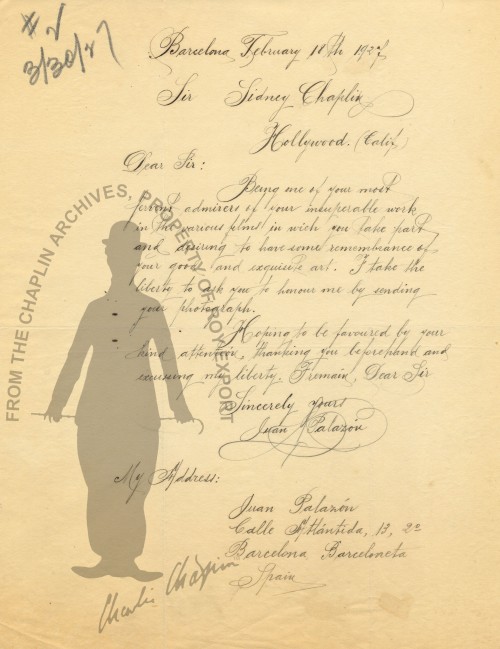 # 2
3/30/27
Barcelona February 18th 1927
Sir Sidney Chaplin
Hollywood. (Calif.)
Dear Sir:
Being one of your most
fervent admirers of your insuperable work
in the various films in wich you take part
and desiring to have some remembrance of
your good and exquisite art. I take the
liberty to ask you to honour me by sending
your photograph.
Hoping to be favoured by your
kind attention, thanking you beforehand and
excusing my liberty, I remain, Dear Sir
Sincerely yours
Juan Palazón
My Address:
Juan Palazón
Calle Atlántida, 13, 2º
Barcelona Barceloneta
Spain
FROM THE CHAPLIN ARCHIVES, PROPERTY OF ROY EXPORT
Charlie Chaplin